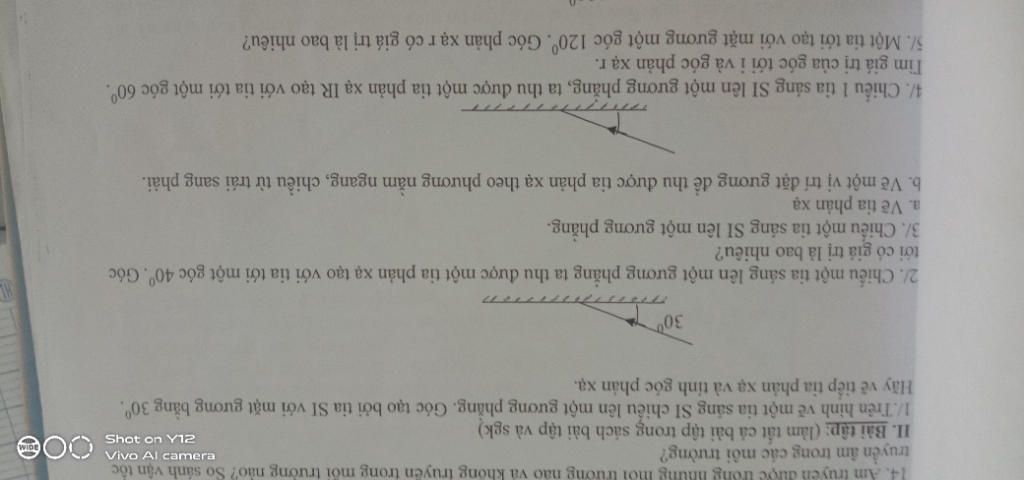 14. Âm truyền được trong những môi trường nào và không truyền trong môi trường nào? So sánh vận tốc
truyền âm trong các môi trường?
II. Bài tập: (làm tất cả bài tập trong sách bài tập và sgk)
1/.Trên hình vẽ một tia sáng SI chiếu lên một gương phẳng. Góc tạo bởi tia SI với mặt gương bằng 30⁰.
Hãy vẽ tiếp tia phản xạ và tính góc phản xạ.
30⁰
2/. Chiếu một tia sáng lên một gương phẳng ta thu được một tia phản xạ tạo với tia tới một góc 40⁰. Góc
tới có giá trị là bao nhiêu?
3/. Chiếu một tia sáng SI lên một gương phẳng.
a. Vẽ tia phản xạ
b. Vẽ một vị trí đặt gương để thu được tia phản xạ theo phương nằm ngang, chiều từ trái sang phải.
4/. Chiếu 1 tia sáng SI lên một gương phẳng, ta thu được một tia phản xạ IR tạo với tia tới một góc 60⁰.
Tìm giá trị của góc tới i và góc phản xạ r.
5/. Một tia tới tạo với mặt gương một góc 120⁰. Góc phản xạ r có giá trị là bao nhiêu?
WIDE
Shot on Y12
Vivo AI camera